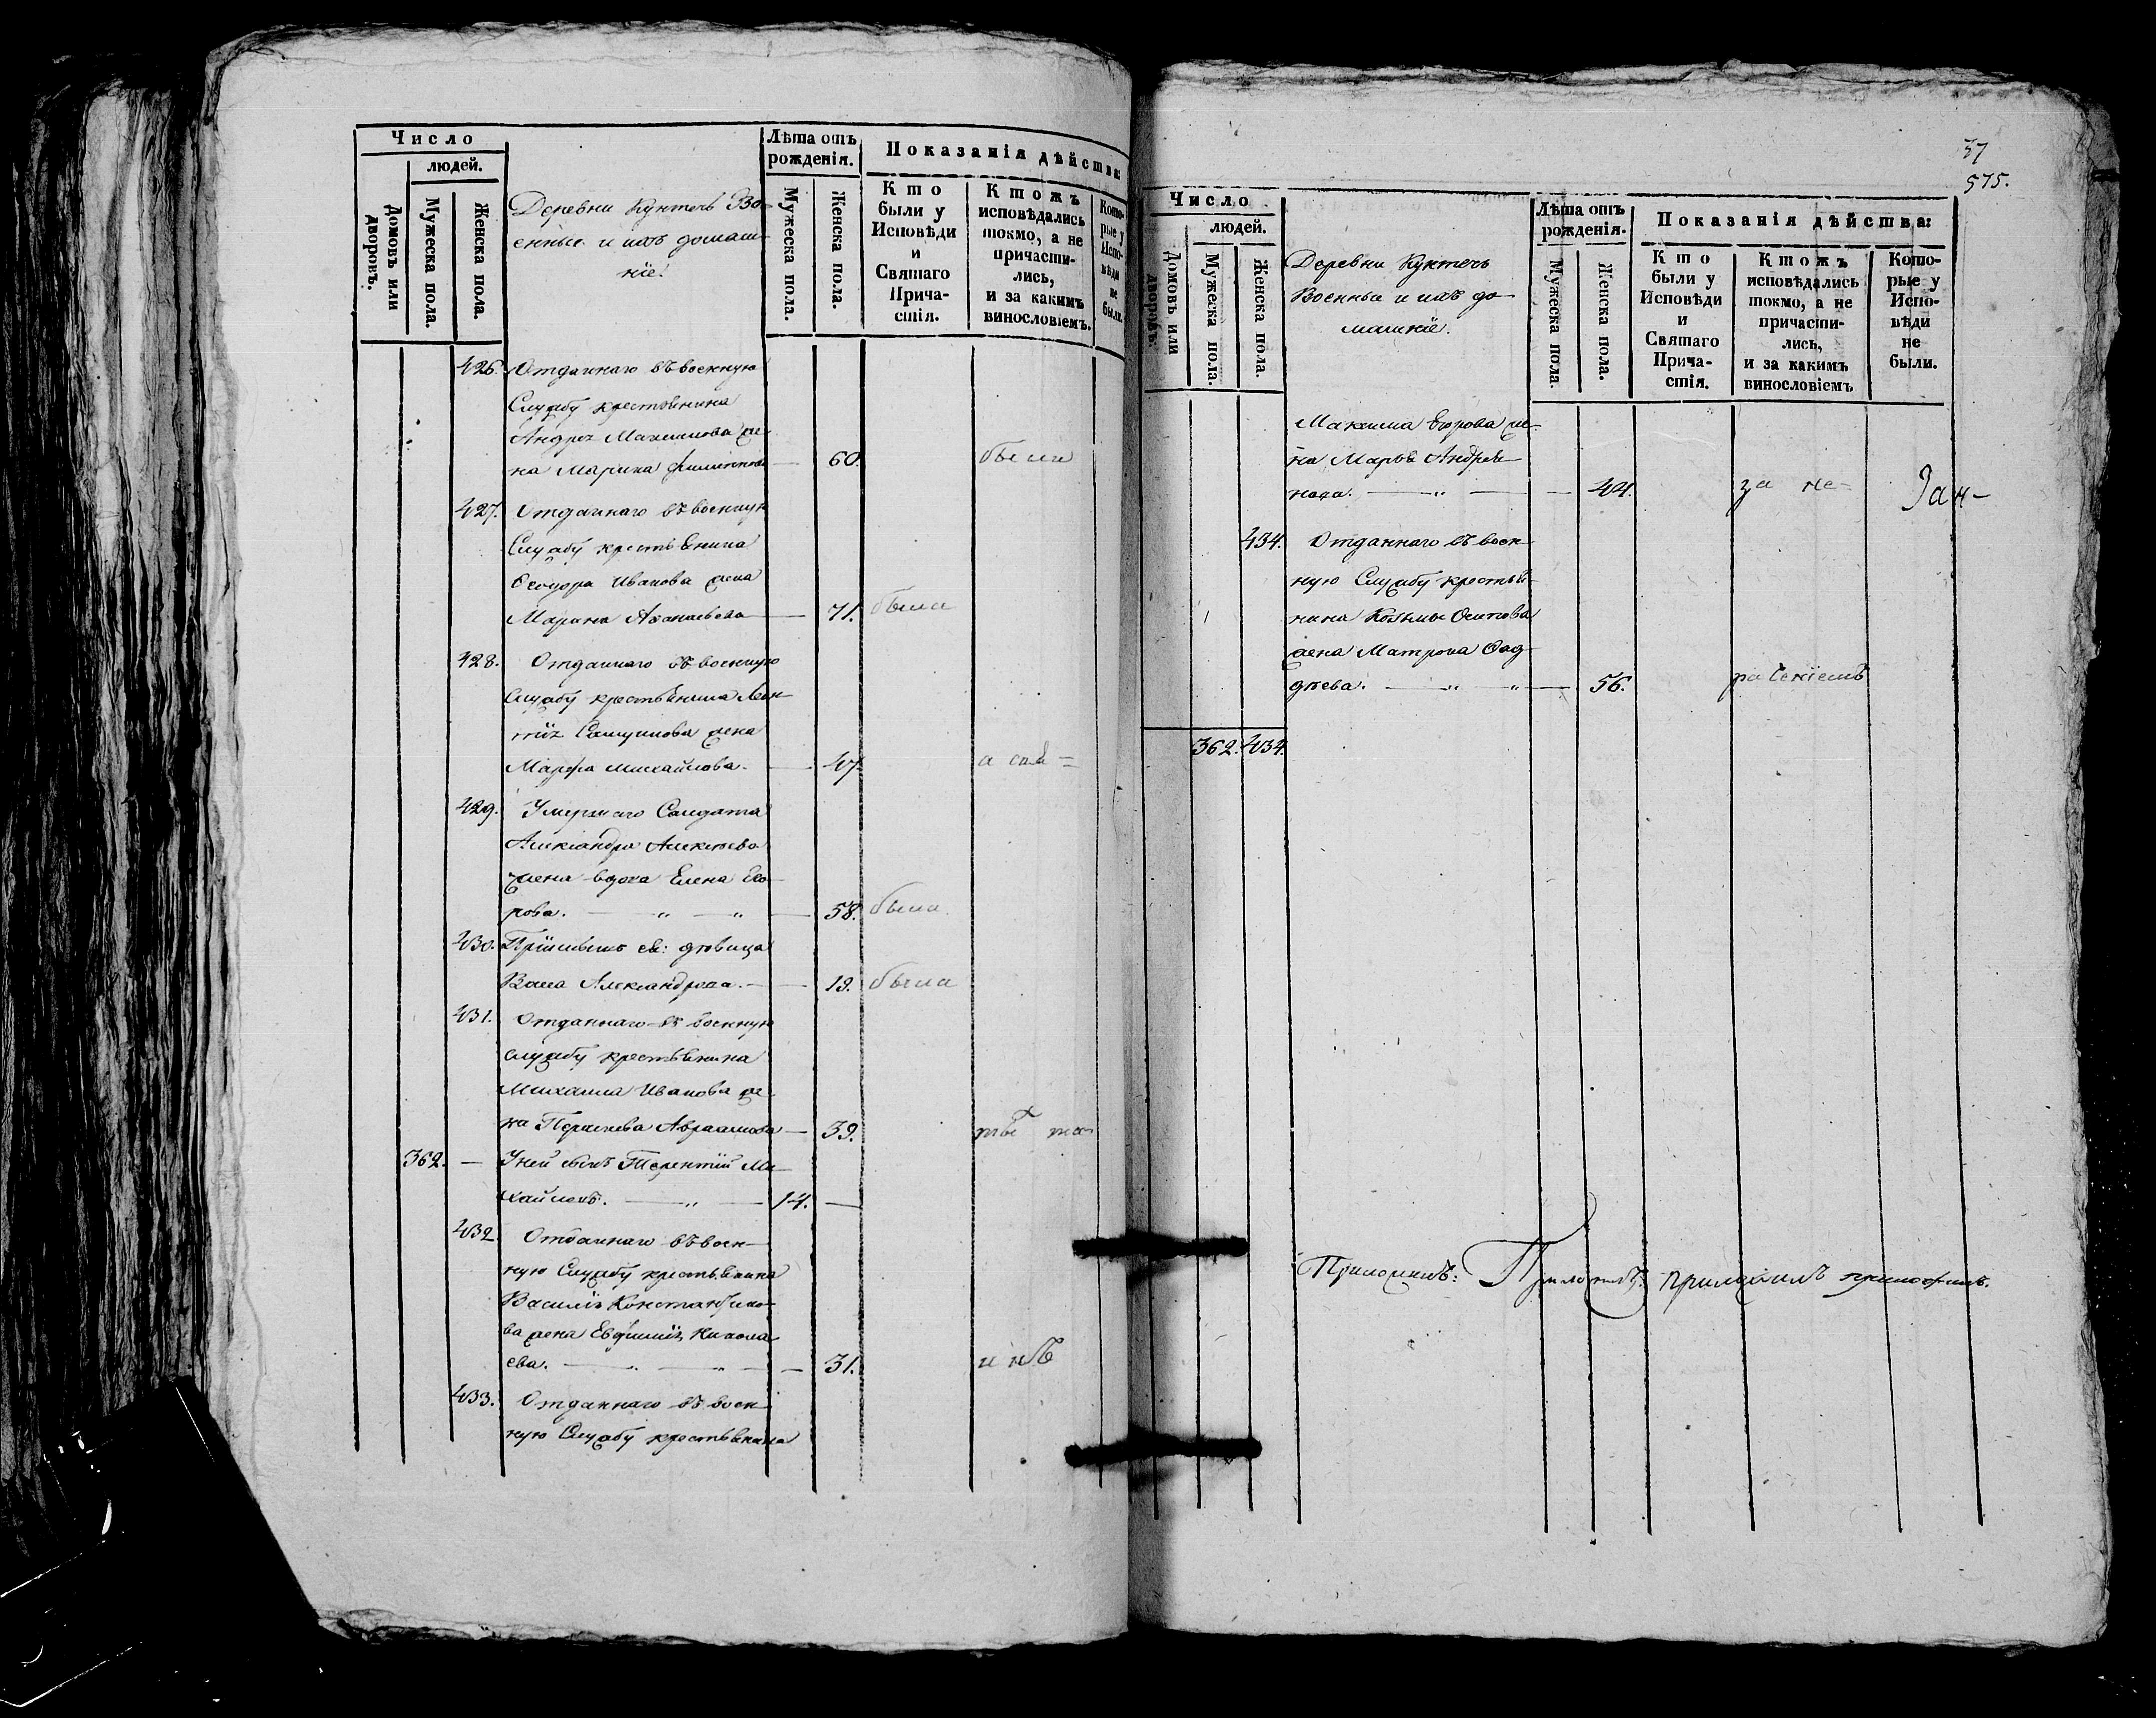 Число
людей.
Домовъ или дворовъ.
Мужеска пола.
Женска пола.
Деревни Кунтечь Во-
енные и ихъ домаш-
нiе.
Лѣта отъ
рожденiя.
Мужеска пола.
Женска пола.
Показанiя дѣйства:
Кто
были у
Исповѣди
и
Святаго
Прича-
стiя.
Ктожъ
исповѣдались
токмо, а не
причасти-
лись,
и за какимъ
винословiемъ.
Кото-
рые у
Испо-
вѣди
не
были.
426. Отданнаго въ военную
Службу крестьянина
Андрея Максимова же-
на Марина 60. были
427. Отданнаго въ военную
Службу крестьянина
Ѳеодора Иванова жена
Марина 71. была
428. Отданнаго въ военную
Службу крестьянина
жена
Марфа Михайлова. 47.
429. Умершаго Солдата
Александра Алексѣева
жена вдова Елена Его-
рова. 58. была
430. дѣвица
Александрова. 19. была
431. Отданнаго въ военную
службу крестьянина
Михаила Иванова же-
на Авраамова 39.
362. У ней сынъ Терентiй Ми-
хайловъ. 14.
432. Отданнаго въ воен-
ную Службу крестьянина
Василiя Константино-
ва жена Евфимiя Никола-
ева. 31.
433. Отданнаго въ воен-
ную Службу крестьянина
37
575.
Число
людей.
Домовъ или дворовъ.
Мужеска пола.
Женска пола.
Деревни Кунтечь
Военные и ихъ до-
машнiе.
Лѣта отъ
рожденiя.
Мужеска пола.
Женска пола.
Показанiя дѣйства:
Кто
были у
Исповѣди
и
Святаго
Прича-
стiя.
Ктожъ
исповѣдались
токмо, а не
причасти-
лись,
и за какимъ
винословiемъ
Кото-
рые у
Испо-
вѣди
не
были.
Максима Егорова же-
на Марья Андрее-
нова. 44. за не-
434. Отданнаго въ воен-
ную Службу крестья-
нина Козмы Осипова
жена Матрона Ѳад-
дѣева. 56. раченiемъ
362. 434.